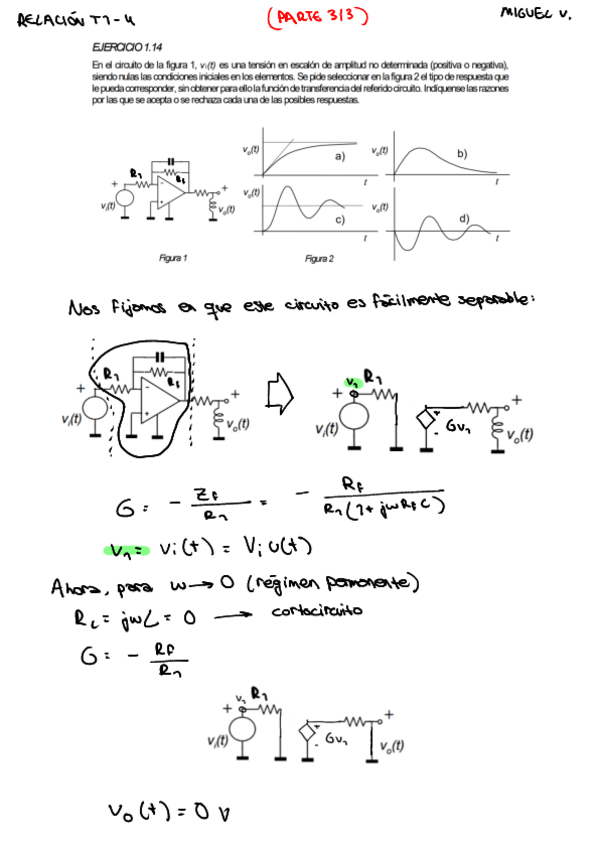 RELACIÓN T1-4
(PARTE 3/3)
MIGUEL V.
EJERCICIO 1.14
En el circuito de la figura 1, vᵢ(t) es una tensión en escalón de amplitud no determinada (positiva o negativa),
siendo nulas las condiciones iniciales en los elementos. Se pide seleccionar en la figura 2 el tipo de respuesta que
le pueda corresponder, sin obtener para ello la función de transferencia del referido circuito. Indíquense las razones
por las que se acepta o se rechaza cada una de las posibles respuestas.
R1 Rf
+ - + +
vᵢ(t) vₒ(t)
Figura 1
vₒ(t) a) t
vₒ(t) b) t
vₒ(t) c) t
vₒ(t) d) t
Figura 2
Nos fijamos en que este circuito es fácilmente separable:
R1 Rf
+ - + +
vᵢ(t) vₒ(t)
V1 R1
+ + - +
vᵢ(t) GV1 vₒ(t)
G = - Zf / R1 = - Rf / R1(1+jwRfC)
V1 = Vi(t) = Vi u(t)
Ahora, para w → 0 (régimen permanente)
RL = jwL = 0 → cortocircuito
G = - Rf / R1
V1 R1
+ + - +
vᵢ(t) GV1 vₒ(t)
Vo(t) = 0 V